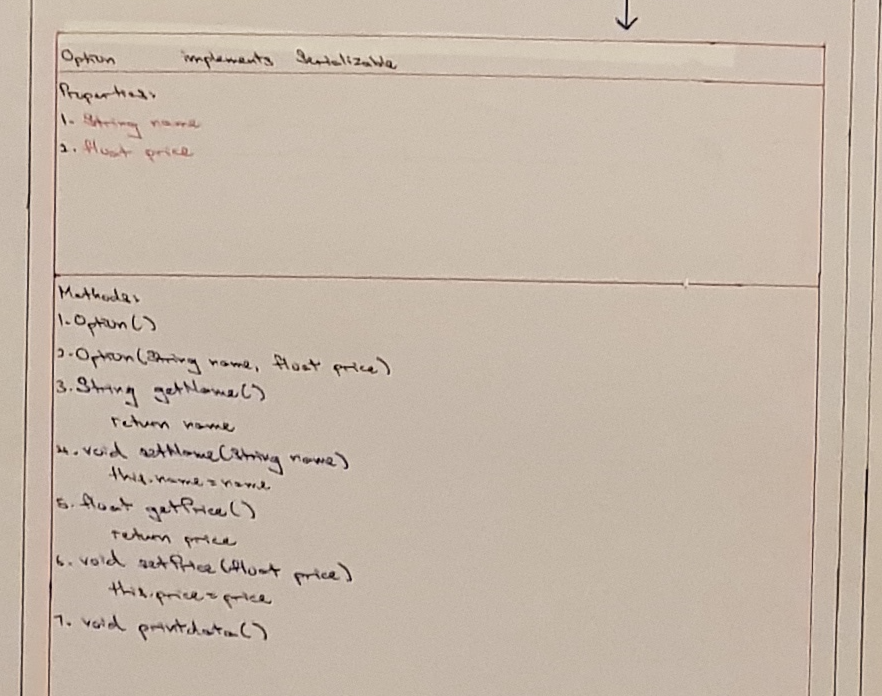 Option implements Serializable
Properties:
1. String name
2. float price
Methods:
1. Option()
2. Option(String name, float price)
3. String getName()
return name
4. void setName(String name)
this.name = name
5. float getPrice()
return price
6. void setPrice(float price)
this.price = price
7. void printdata()